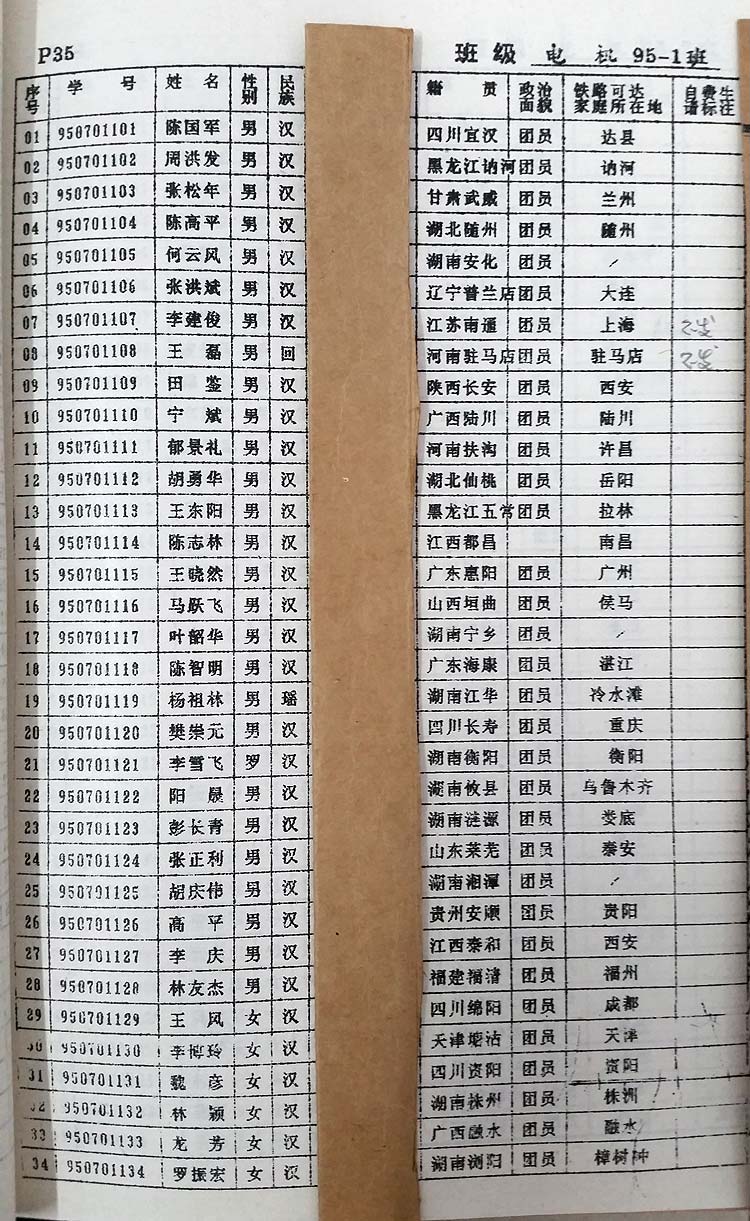 P35 班级 电 机 95-1班
序号 学 号 姓 名 性别 民族 籍 贯 政治面貌 铁路可达家庭所在地 自费生请标注
01 950701101 陈国军 男 汉 四川宣汉 团员 达县
02 950701102 周洪发 男 汉 黑龙江讷河 团员 讷河
03 950701103 张松年 男 汉 甘肃武威 团员 兰州
04 950701104 陈高平 男 汉 湖北随州 团员 随州
05 950701105 何云风 男 汉 湖南安化 团员 /
06 950701106 张洪斌 男 汉 辽宁普兰店 团员 大连
07 950701107 李建俊 男 汉 江苏南通 团员 上海
08 950701108 王 磊 男 回 河南驻马店 团员 驻马店
09 950701109 田 鉴 男 汉 陕西长安 团员 西安
10 950701110 宁 斌 男 汉 广西陆川 团员 陆川
11 950701111 郁景礼 男 汉 河南扶沟 团员 许昌
12 950701112 胡勇华 男 汉 湖北仙桃 团员 岳阳
13 950701113 王东阳 男 汉 黑龙江五常 团员 拉林
14 950701114 陈志林 男 汉 江西都昌 南昌
15 950701115 王晓然 男 汉 广东惠阳 团员 广州
16 950701116 马跃飞 男 汉 山西垣曲 团员 侯马
17 950701117 叶韶华 男 汉 湖南宁乡 团员 /
18 950701118 陈智明 男 汉 广东海康 团员 湛江
19 950701119 杨祖林 男 瑶 湖南江华 团员 冷水滩
20 950701120 樊崇元 男 汉 四川长寿 团员 重庆
21 950701121 李雪飞 罗 汉 湖南衡阳 团员 衡阳
22 950701122 阳 晟 男 汉 湖南攸县 团员 乌鲁木齐
23 950701123 彭长青 男 汉 湖南涟源 团员 娄底
24 950701124 张正利 男 汉 山东莱芜 团员 泰安
25 950701125 胡庆伟 男 汉 湖南湘潭 团员 /
26 950701126 高 平 男 汉 贵州安顺 团员 贵阳
27 950701127 李 庆 男 汉 江西泰和 团员 西安
28 950701128 林友杰 男 汉 福建福清 团员 福州
29 950701129 王 风 女 汉 四川绵阳 团员 成都
30 950701130 李博玲 女 汉 天津塘沽 团员 天津
31 950701131 魏 彦 女 汉 四川资阳 团员 资阳
32 950701132 林 颖 女 汉 湖南株州 团员 株洲
33 950701133 龙 芳 女 汉 广西融水 团员 融水
34 950701134 罗振宏 女 汉 湖南浏阳 团员 樟树